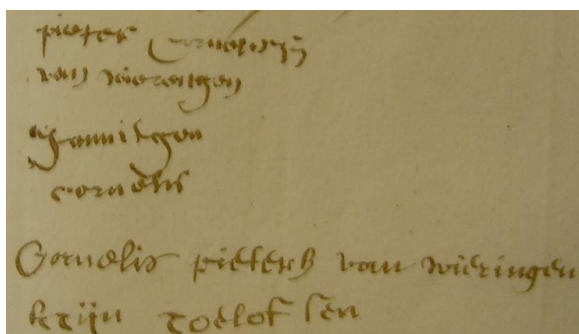 pieter Cornelisz
van wierengen
Jannitgen
cornelis
Cornelis pieterß van wieringen
roelofsen